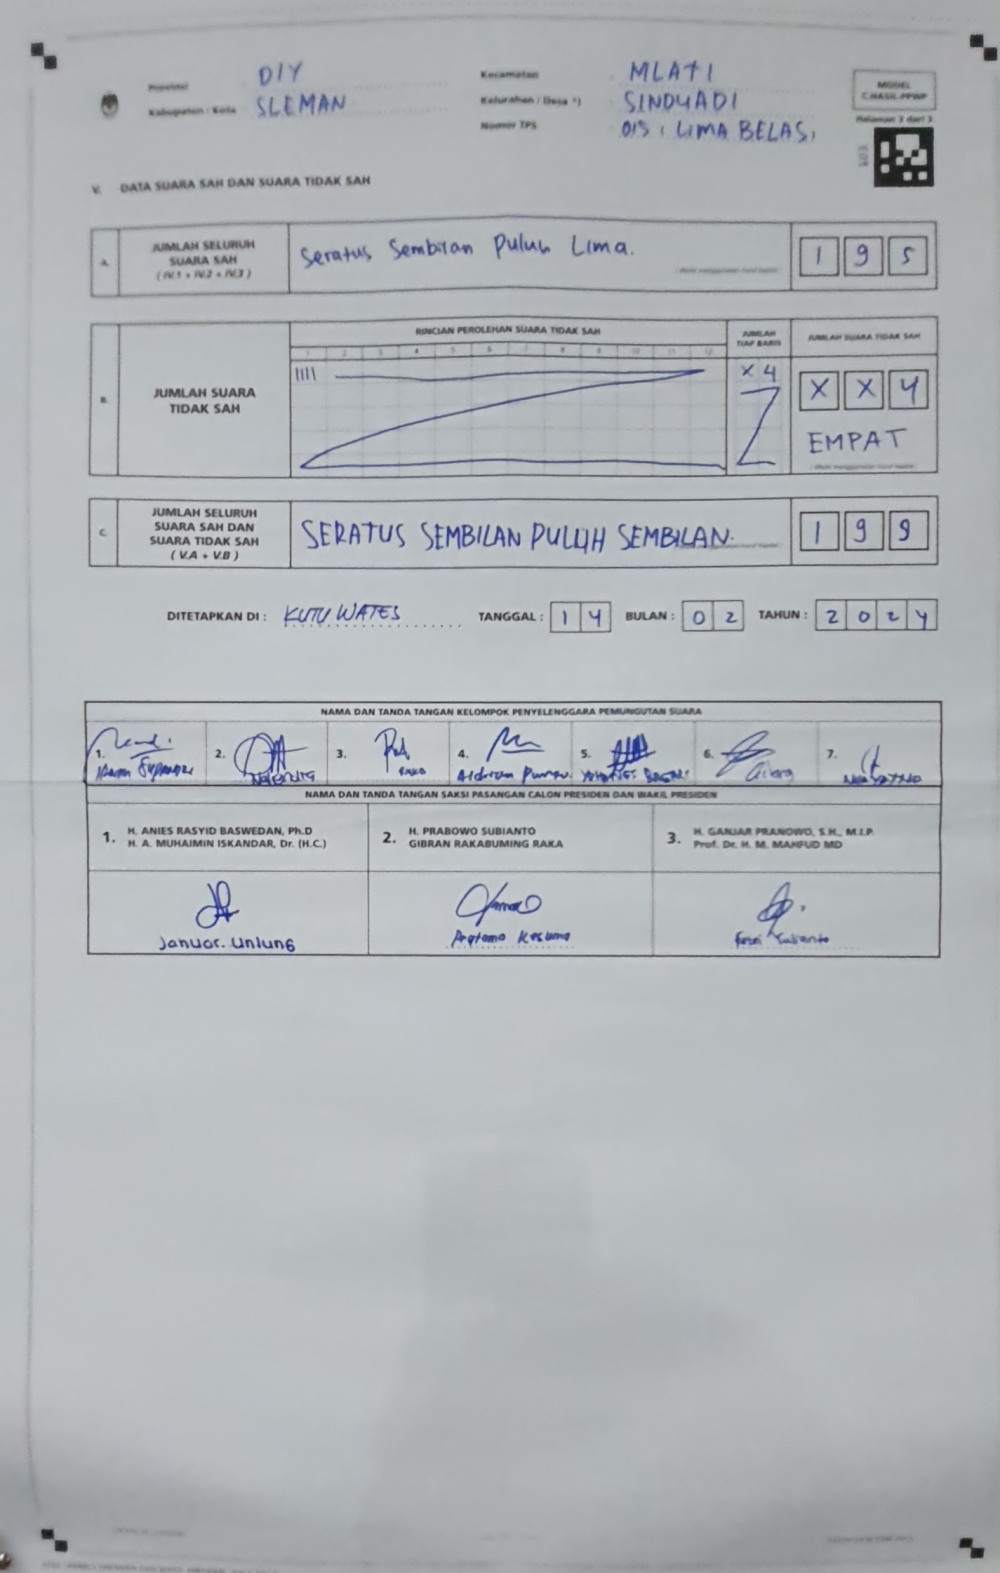 Provinsi DIY
Kabupaten / Kota SLEMAN
Kecamatan MLATI
Kelurahan / Desa *) SINDUADI
Nomor TPS 015 , LIMA BELAS,
MODEL
C.HASIL-PPWP
Halaman 3 dari 3
103
V. DATA SUARA SAH DAN SUARA TIDAK SAH
A. JUMLAH SELURUH
SUARA SAH
( IV.1 + IV.2 + IV.3 )
Seratus Sembilan Puluh Lima.
1 9 5
B. JUMLAH SUARA
TIDAK SAH
RINCIAN PEROLEHAN SUARA TIDAK SAH
1 2 3 4 5 6 7 8 9 10 11 12
||||
JUMLAH
TIAP BARIS
X 4
JUMLAH SUARA TIDAK SAH
X X 4
EMPAT
C. JUMLAH SELURUH
SUARA SAH DAN
SUARA TIDAK SAH
( V.A + V.B )
SERATUS SEMBILAN PULUH SEMBILAN.
1 9 9
DITETAPKAN DI : KUTU WATES TANGGAL : 1 4 BULAN : 0 2 TAHUN : 2 0 2 4
NAMA DAN TANDA TANGAN KELOMPOK PENYELENGGARA PEMUNGUTAN SUARA
1. 2. 3. 4. 5. 6. 7.
NAMA DAN TANDA TANGAN SAKSI PASANGAN CALON PRESIDEN DAN WAKIL PRESIDEN
1. H. ANIES RASYID BASWEDAN, Ph.D
H. A. MUHAIMIN ISKANDAR, Dr. (H.C.)
2. H. PRABOWO SUBIANTO
GIBRAN RAKABUMING RAKA
3. H. GANJAR PRANOWO, S.H., M.I.P.
Prof. Dr. H. M. MAHFUD MD
Januar. Unlung